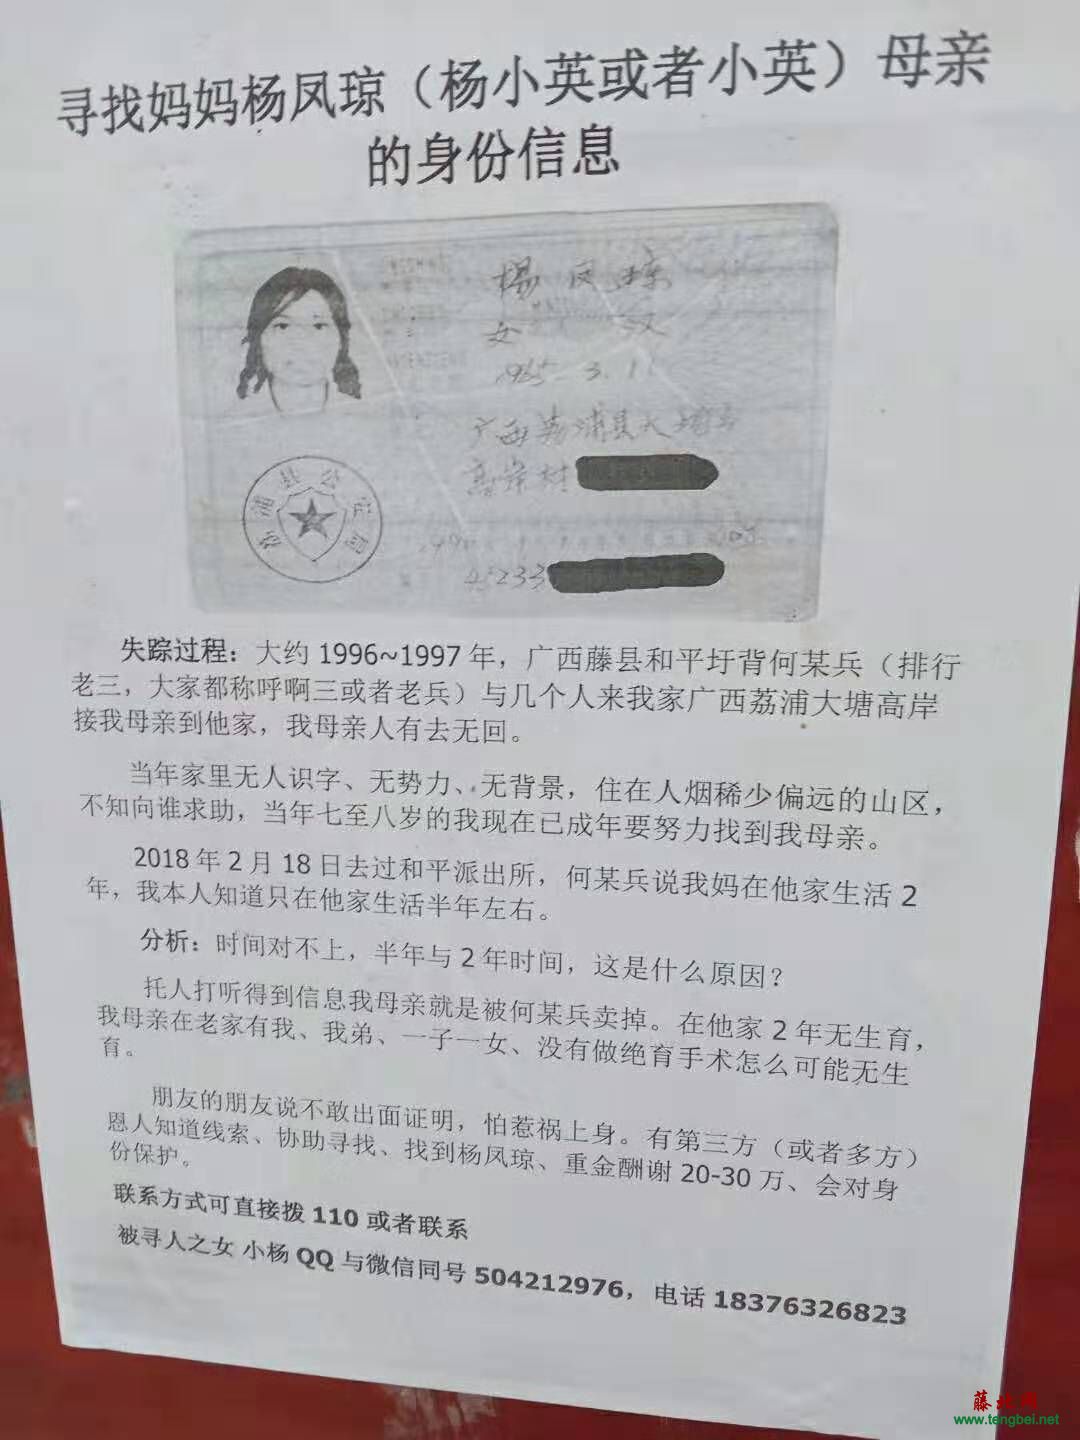 寻找妈妈杨凤琼（杨小英或者小英）母亲
的身份信息
杨凤琼
女 汉
1965 3.11
广西荔浦县大塘
高岸村
荔浦县公安局
45233
失踪过程：大约 1996~1997 年，广西藤县和平圩背何某兵（排行
老三，大家都称呼啊三或者老兵）与几个人来我家广西荔浦大塘高岸
接我母亲到他家，我母亲人有去无回。
当年家里无人识字、无势力、无背景，住在人烟稀少偏远的山区，
不知向谁求助，当年七至八岁的我现在已成年要努力找到我母亲。
2018 年 2 月 18 日去过和平派出所，何某兵说我妈在他家生活 2
年，我本人知道只在他家生活半年左右。
分析：时间对不上，半年与 2 年时间，这是什么原因？
托人打听得到信息我母亲就是被何某兵卖掉。在他家 2 年无生育，
我母亲在老家有我、我弟、一子一女、没有做绝育手术怎么可能无生
育。
朋友的朋友说不敢出面证明，怕惹祸上身。有第三方（或者多方）
恩人知道线索、协助寻找、找到杨凤琼、重金酬谢 20-30 万、会对身
份保护。
联系方式可直接拨 110 或者联系
被寻人之女 小杨 QQ 与微信同号 504212976，电话 18376326823
藤北网
www.tengbei.net